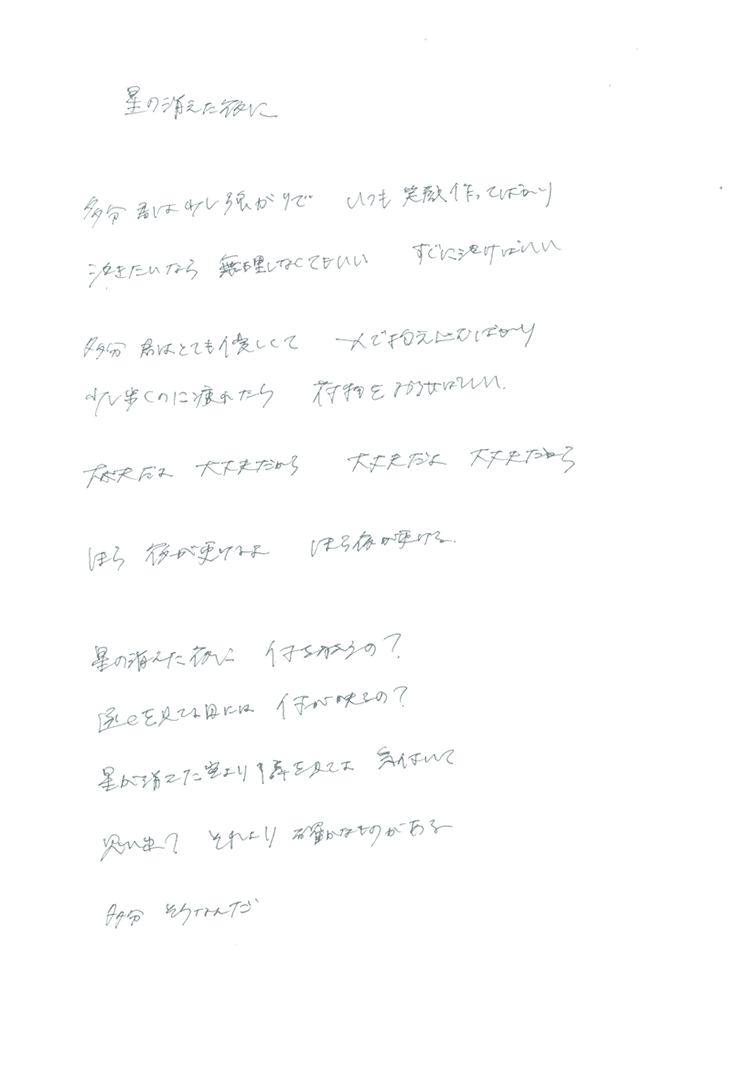 星の消えた夜に
多分 君は少し強がりで いつも 笑顔作ってばかり
泣きたいなら 無理しなくてもいい すぐに泣けばいい
多分 君はとても優しくて 一人で抱え込むばかり
少し歩くのに疲れたら 荷物を おろせばいい
大丈夫だよ 大丈夫だから 大丈夫だよ 大丈夫だから
ほら 夜が更けるよ ほら夜が更ける
星の消えた夜に 何を祈るの?
を見てる目には 何が映るの?
星が消えた空より 隣を見てよ 気付いて
思い出して それより 確かなものがある
多分 そうなんだ